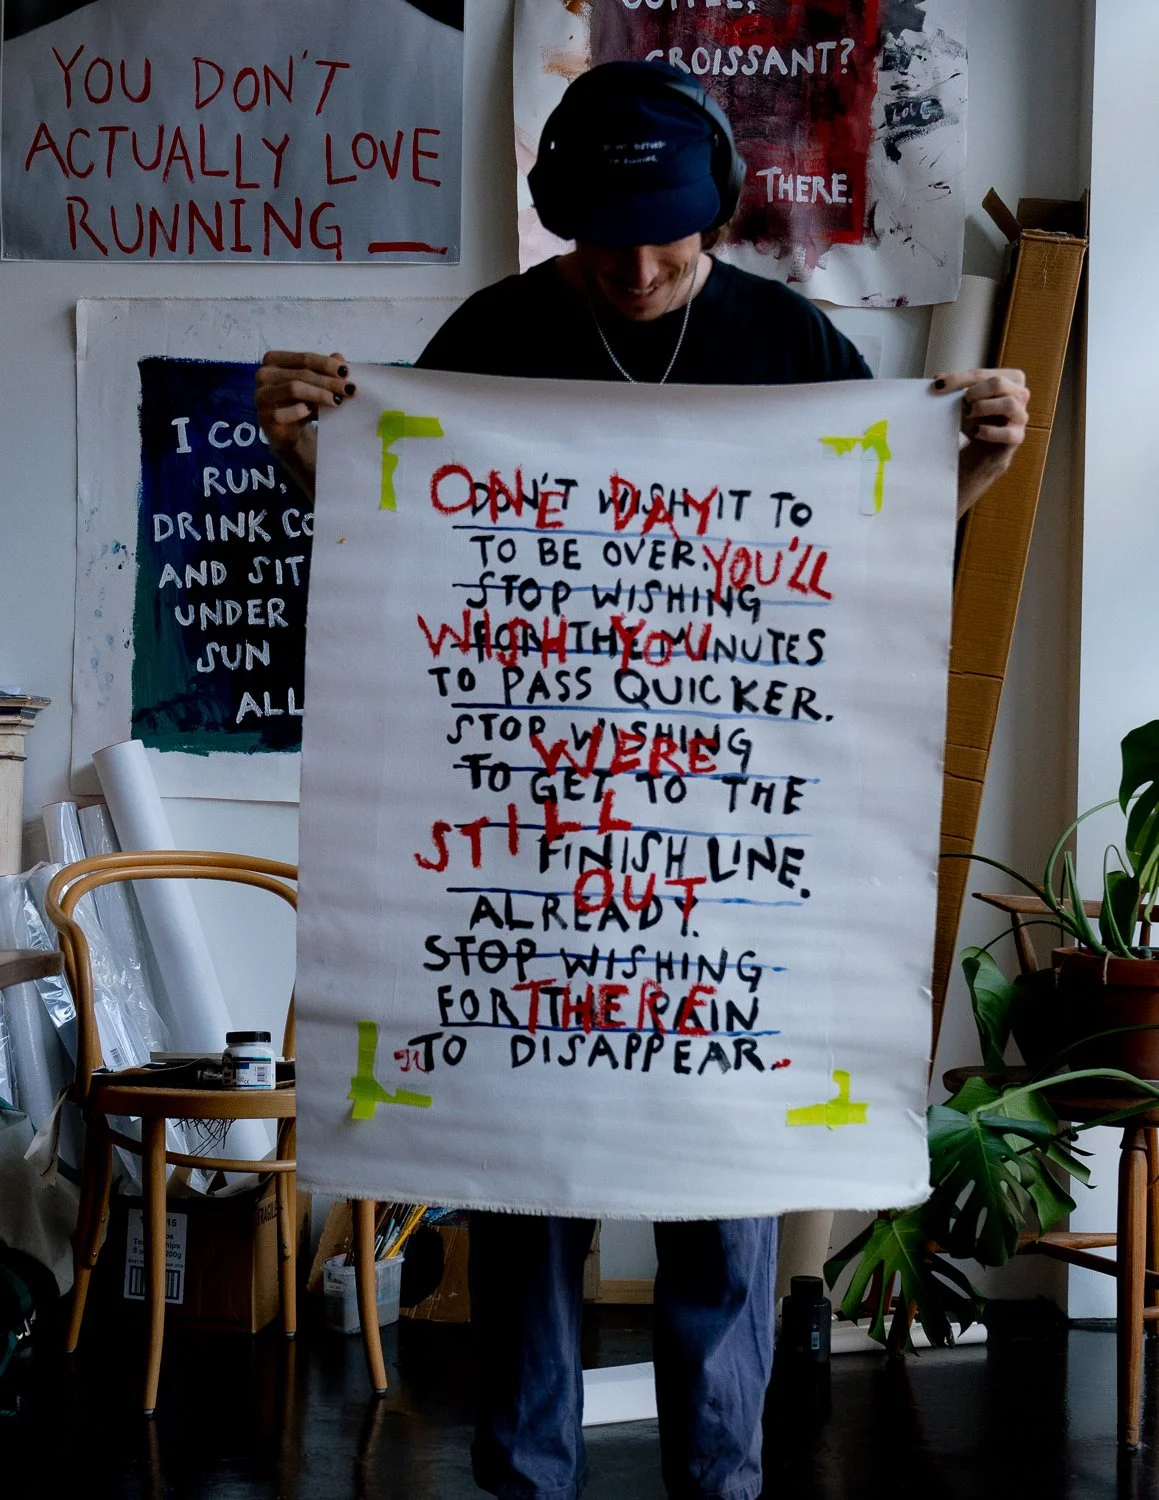 YOU DON'T
ACTUALLY LOVE
RUNNING
CROISSANT?
LOVE
THERE.
I
RUN,
DRINK
AND SIT
UNDER
SUN
ALL
DON'T WISH IT TO
TO BE OVER.
STOP WISHING
FOR THE MINUTES
TO PASS QUICKER.
STOP WISHING
TO GET TO THE
FINISH LINE.
ALREADY.
STOP WISHING
FOR THE PAIN
TO DISAPPEAR.
ONE DAY
YOU'LL
WISH YOU
WERE
STILL
OUT
THERE